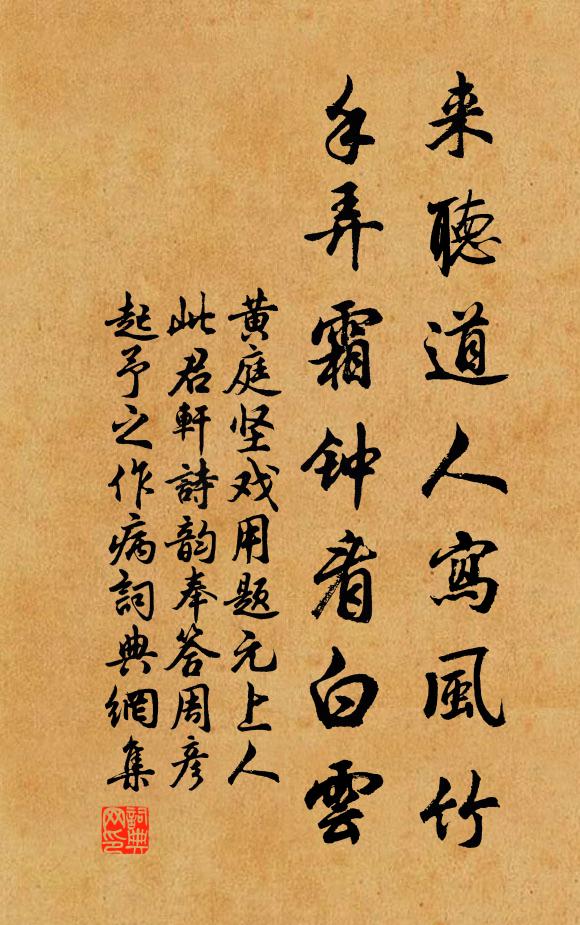 来聽道人寫風竹
手弄霜钟看白雲
黄庭坚戏用题元上人
此君軒詩韵奉答周彦
起予之作病詞典網集
詞典网印